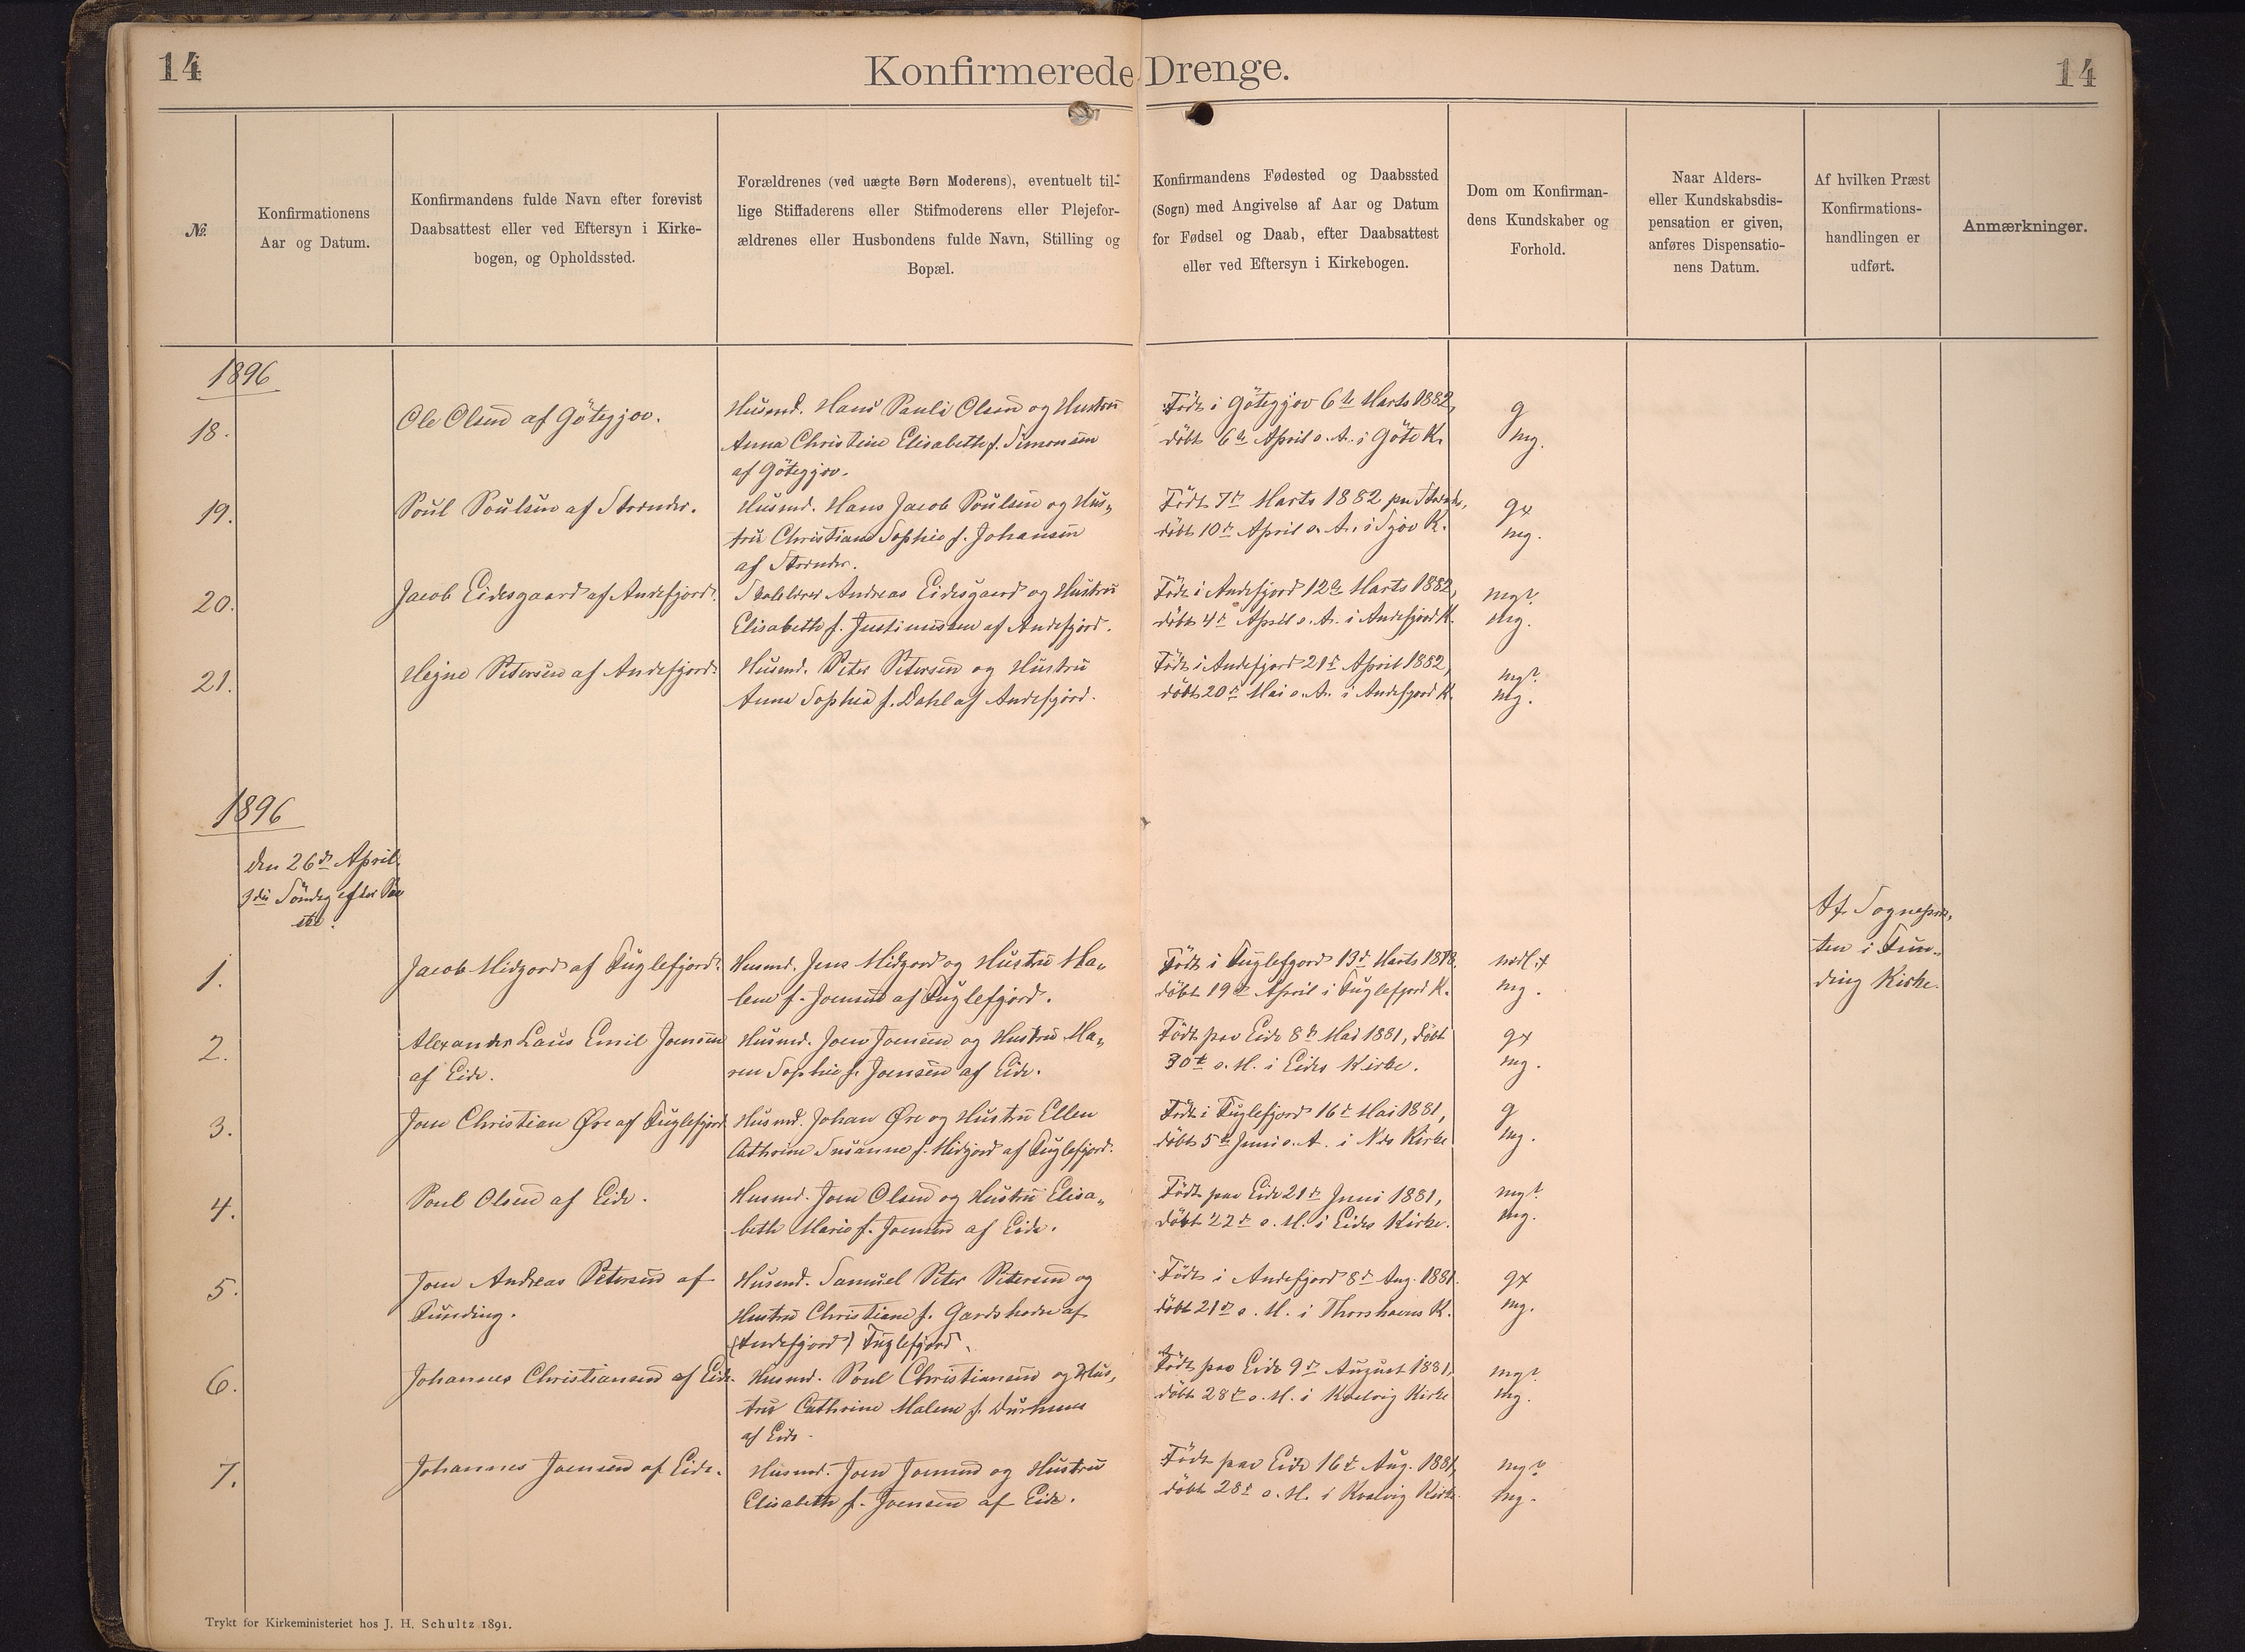 14
Konfirmerede Drenge.
14
№.
Konfirmationens
Aar og Datum.
Konfirmandens fulde Navn efter forevist
Daabsattest eller ved Eftersyn i Kirke-
bogen, og Opholdssted.
Forældrenes (ved uægte Børn Moderens), eventuelt til-
lige Stiffaderens eller Stifmoderens eller Plejefor-
ældrenes eller Husbondens fulde Navn, Stilling og
Bopæl.
Konfirmandens Fødested og Daabssted
(Sogn) med Angivelse af Aar og Datum
for Fødsel og Daab, efter Daabsattest
eller ved Eftersyn i Kirkebogen.
Dom om Konfirman-
dens Kundskaber og
Forhold.
Naar Alders-
eller Kundskabsdis-
pensation er given,
anføres Dispensatio-
nens Datum.
Af hvilken Præst
Konfirmations-
handlingen er
udført.
Anmærkninger.
1896
18.
Ole Olsen af Götegjov.
Husmd. Hans Pauli Olsen og Hustru
Anna Christine Elisabeth f. Simonsen
af Götegjov.
Födt i Götegjov 6te Marts 1882,
döbt 6te April s. A. i Göte K.
g
mg.
19.
Poul Poulsen af Strender.
Husmd. Hans Jacob Poulsen og Hus-
tru Christiane Sophie f. Johansen
af Strender.
Födt 7de Marts 1882 paa Strender,
döbt 10de April s. A. i Sjov K.
gx
mg.
20.
Jacob Eidesgaard af Andefjord.
Skolelærer Andreas Eidesgaard og Hustru
Elisabeth f. Justinussen af Andefjord.
Födt i Andefjord 12te Marts 1882,
döbt 4de April s. A. i Andefjord K.
mg?
mg.
21.
Hejne Petersen af Andefjord.
Husmd. Peter Petersen og Hustru
Anna Sophia f. Dahl af Andefjord.
Födt i Andefjord 21de April 1882,
döbt 20de Mai s. A. i Andefjord K.
mg?
mg.
1896
den 26de April
3die Söndag efter Paa
ske.
Af Sognepræ-
sten i Fun-
ding Kirke.
1.
Jacob Midgord af Fuglefjord.
Husmd. Jens Midgord og Hustru Ma-
lene f. Joensen af Fuglefjord.
Födt i Fuglefjord 13de Marts 1878.
döbt 19de April i Fuglefjord K.
mdl.x
mg.
2.
Alexander Laus Emil Joensen
af Eide.
Husmd. Joen Joensen og Hustru Ma-
ren Sophie f. Joensen af Eide.
Födt paa Eide 8de Mai 1881, döbt
30te s. M. i Eides Kirke.
gx
mg.
3.
Joen Christian Øre af Fuglefjord
Husmd. Johan Øre og Hustru Ellen
Cathrine Susanne f. Midgord af Fuglefjord.
Födt i Fuglefjord 16de Mai 1881,
döbt 5te Juni s. A. i Nes Kirke
g
mg.
4.
Poul Olsen af Eide.
Husmd. Joen Olsen og Hustru Elisa-
beth Marie f. Joensen af Eide.
Födt paa Eide 21de Juni 1881,
döbt 22de s. M. i Eides Kirke.
mg?
mg.
5.
Joen Andreas Petersen af
Funding.
Husmd. Samuel Peter Petersen og
Hustru Christiane f. Gardshodn af
(Andefjord) Fuglefjord.
Födt i Andefjord 8de Aug. 1881.
döbt 21de s. M. i Thorshavns K.
gx
mg.
6.
Johannes Christiansen af Eide.
Husmd. Poul Christiansen og Hus-
tru Cathrine Malene f. Durhuus
af Eide.
Födt paa Eide 9de August 1881,
döbt 28de s. M. i Kvalvig Kirke
mg?
mg.
7.
Johannes Joensen af Eide.
Husmd. Joen Joensen og Hustru
Elisabeth f. Joensen af Eide.
Födt paa Eide 16de Aug. 1881,
döbt 28de s. M. i Kvalvig Kirke.
mg?
mg.
Trykt for Kirkeministeriet hos J. H. Schultz 1891.